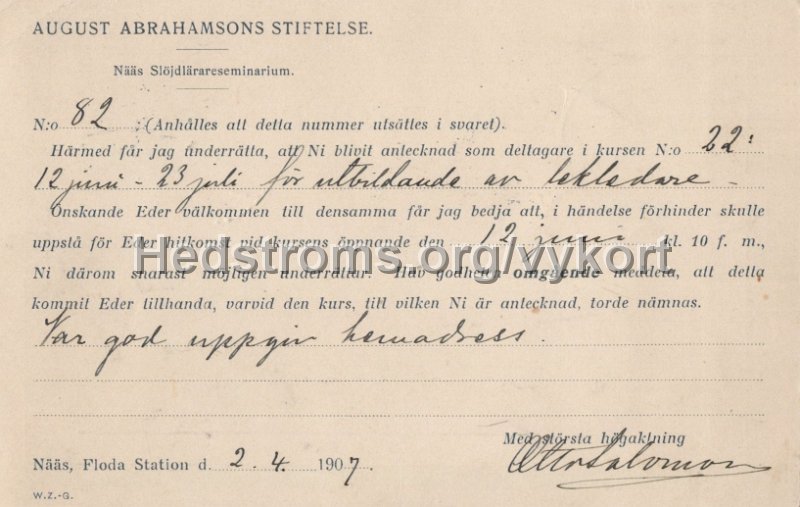 AUGUST ABRAHAMSONS STIFTELSE.
Nääs Slöjdlärareseminarium.
N:o 82 ; (Anhålles att detta nummer utsättes i svaret).
Härmed får jag underrätta, att Ni blivit antecknad som deltagare i kursen N:o 22:
12 juni - 23 juli för utbildande av lekledare -
Önskande Eder välkommen till densamma får jag bedja att, i händelse förhinder skulle
uppstå för Eder hitkomst vid kursens öppnande den 12 juni kl. 10 f. m.,
Hedstroms.org/vykort
Ni därom snarast möjligen underrättar. Hav godheten omgående meddela, att detta
kommit Eder tillhanda, varvid den kurs, till vilken Ni är antecknad, torde nämnas.
Var god uppgiv hemadress.
Med största högaktning
Nääs, Floda Station d. 2.4. 1907.
Otto Salomon
W.Z.-G.